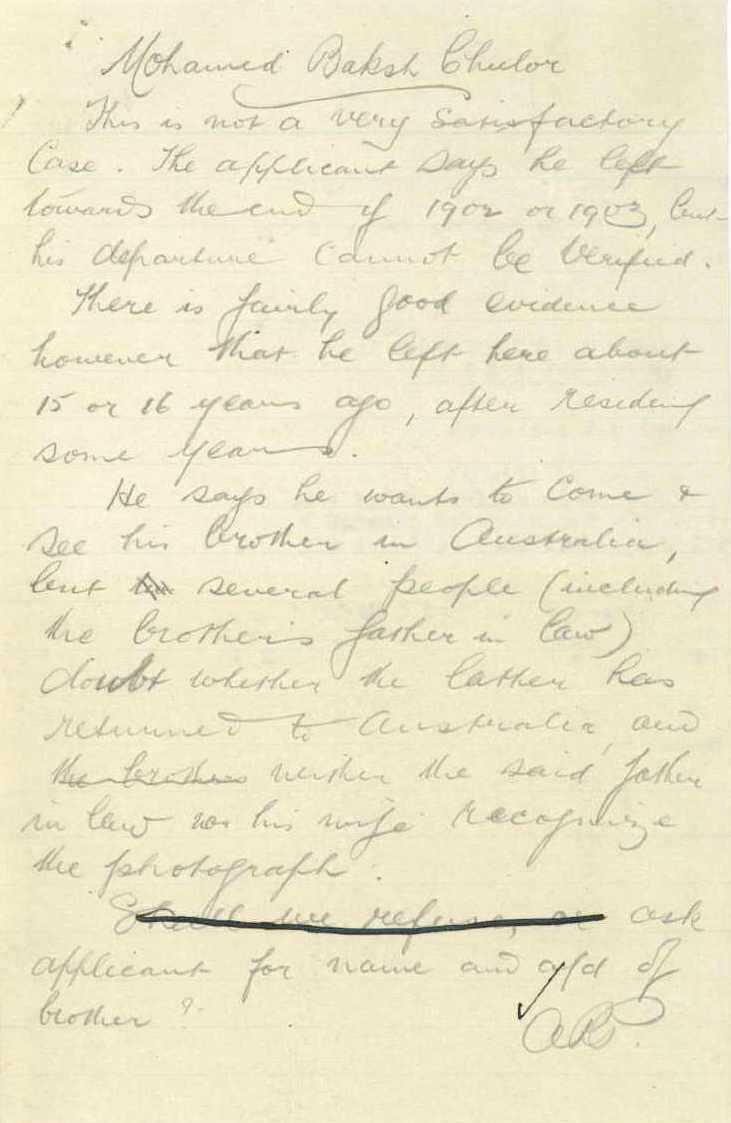 Mohamed Baksh Chulor
This is not a very satisfactory
Case. The applicant says he left
towards the end of 1902 or 1903, but
his departure cannot be verified.
There is fairly good evidence
however that he left here about
15 or 16 years ago, after residing
some years.
He says he wants to come &
see his brother in Australia,
but several people (including
the brother's father in law)
doubt whether the latter has
returned to Australia, and
the brothers neither the said father
in law nor his wife recognize
the photograph.
Shall we refuse, or ask
applicant for name and a/d of
brother?